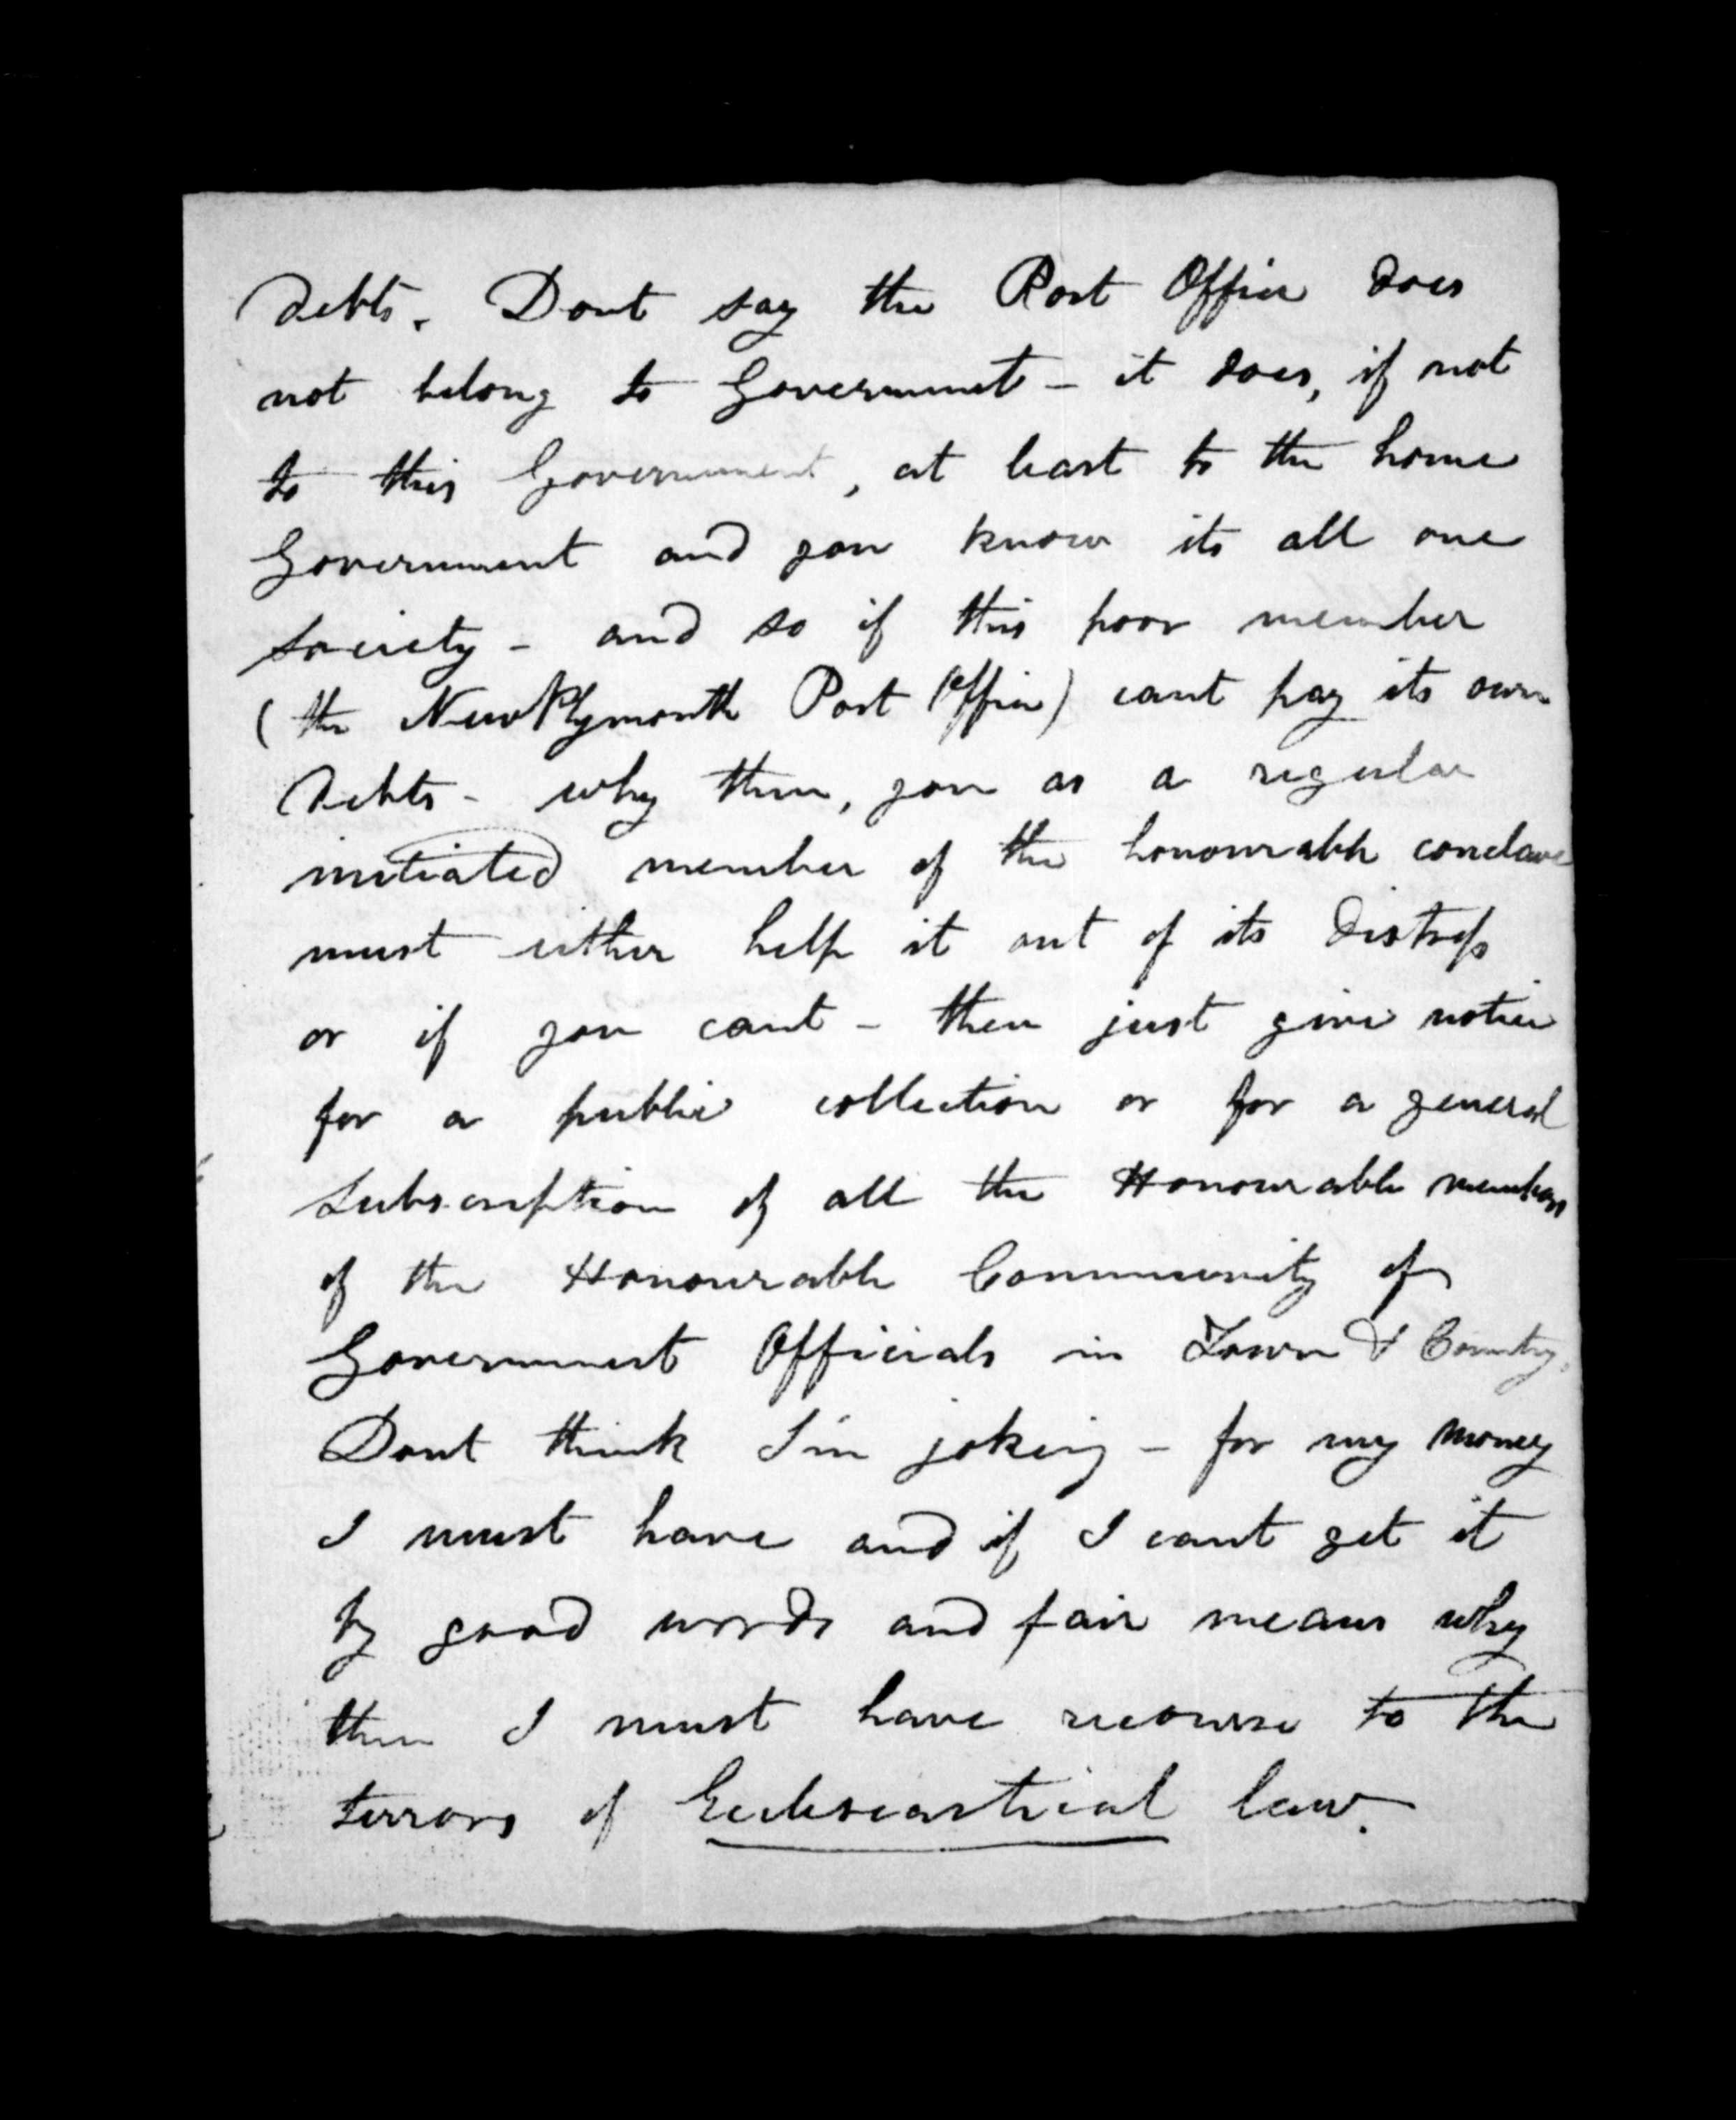 debts. Dont say the Post Office does
not belong to Government - it does, if not
to this Government, at least to the home
Government and you know its all one
society - and so if this poor member
(the New Plymouth Post Office) cant pay its own
debts - why then, you as a regular
initiated member of the honourable conclave
must either help it out of its distress
or if you cant - then just give notice
for a public collection or for a general
subscription of all the Honourable members
of the Honourable Community of
Government Officials in Town & Country.
Dont think I'm joking - for my money
I must have and if I cant get it
by good words and fair means why
then I must have recourse to the
terrors of Ecclesiastical law.